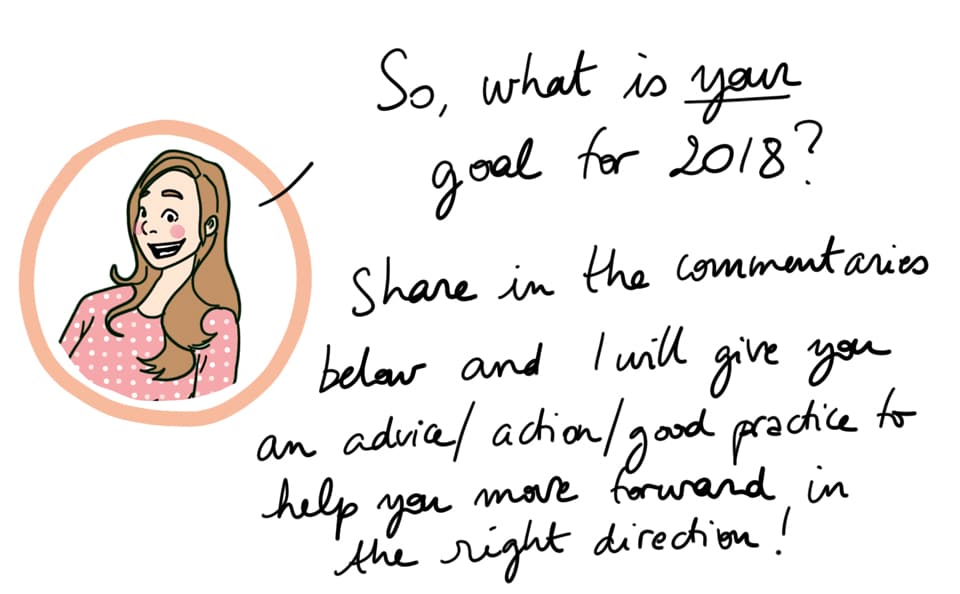 So, what is your
goal for 2018?
Share in the commentaries
below and I will give you
an advice/action/good practice to
help you move forward in
the right direction!